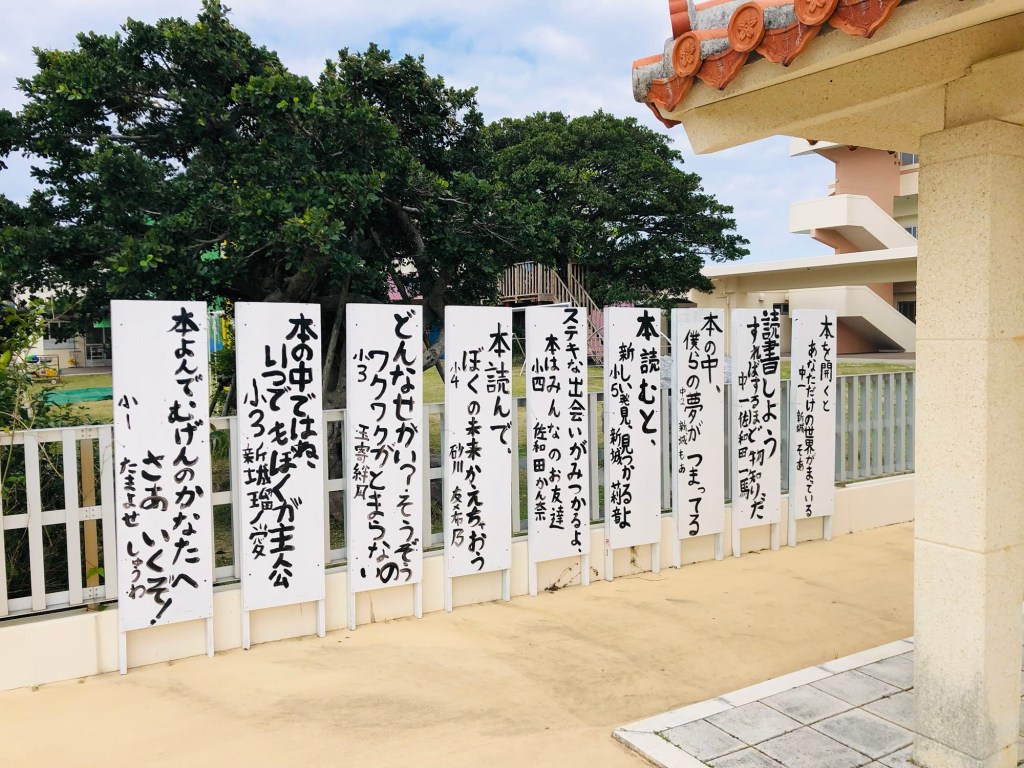 本よんで、むげんのかなたへ
さあ いくぞ!
小一 たまよせ しゅうわ
本の中ではね、
いつでもぼくが主人公
小3 新城瑠ノ愛
どんなせかい?そうぞう
ワクワクがとまらないの
小3 玉寄絆
本読んで、
ぼくの未来かえちゃおう
小4 砂川 友希乃
ステキな出会いがみつかるよ、
本はみんなのお友達
小四 佐和田かん奈
本読むと、
新しい発見、見つかるよ
小5 新城 莉音
本の中、
僕らの夢が つまってる
中2 新城もあ
読書しよう
すればするほど物知りだ
中一 佐和田一馬
本を開くと
あなただけの世界がまっている
中3 新城 そあ